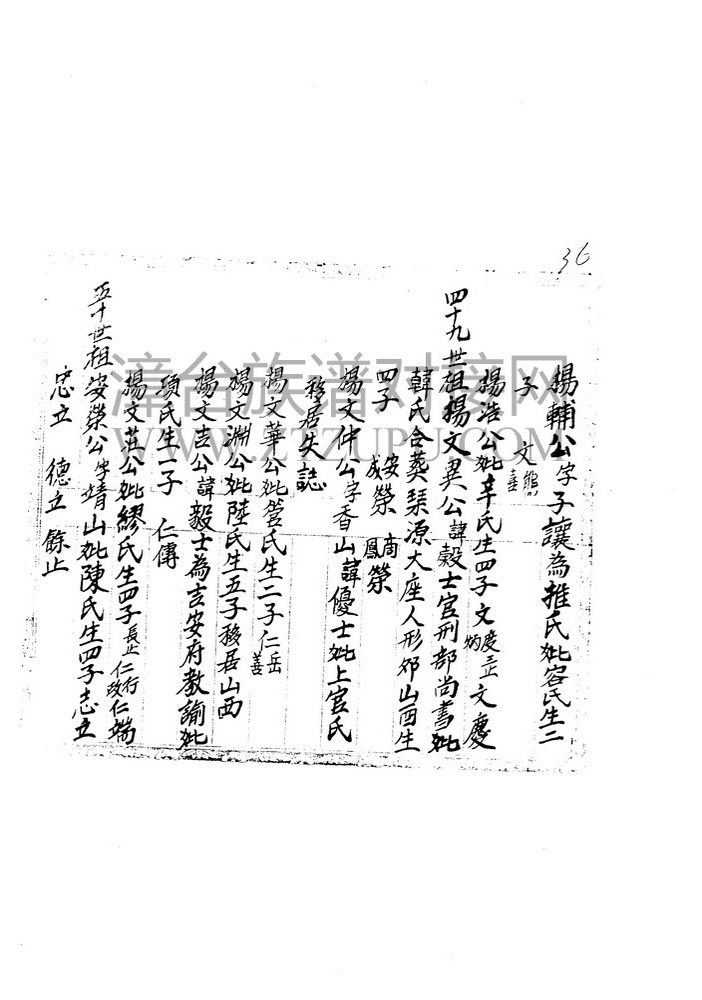 36
楊輔公字子讓為推氏妣容氏生二
子 文熊 喜
楊浩公妣辛氏生四子文炳 慶 文慶
四十九世祖楊文異公諱榖士官刑部尚書妣
韓氏合葬琹源大座人形邜山酉生
四子 安榮 成 商榮 鳳
楊文仲公字香山諱優士妣上官氏
移居失誌
楊文華公妣管氏生二子仁岳 善
楊文淵公妣陸氏生五子移居山西
楊文吉公諱毅士為吉安府教諭妣
項氏生一子 仁傳
楊文莊公妣繆氏生四子長止仁行 仁政 仁端
五十世祖安榮公字靖山妣陳氏生四子志立
忠立 德立 餘止
漳台族谱对接网
WWW.ZTZUPU.COM